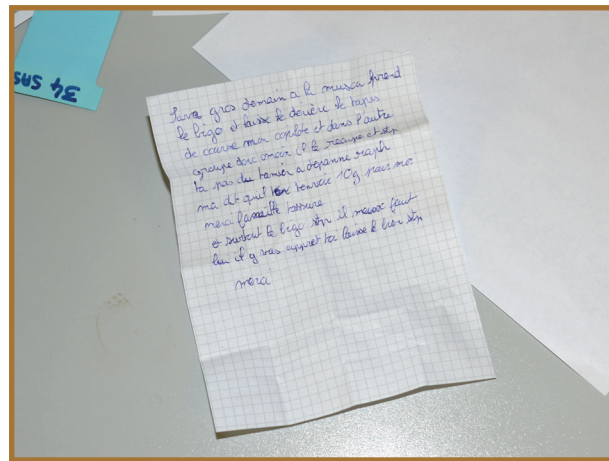 34 SAS
Sava gros demain a la muscu prend
le bigo et laisse le derière le tapis
de course mon copilote et dans l'autre
groupe donc omoin il le recupe et stp
ta pas du tamien a depanne raph
ma dit qu'il renvoie 10g pour moi
merci tassure
et surtout le bigo stp il faut
lui il y vas apret toi laisse le bien stp
merci